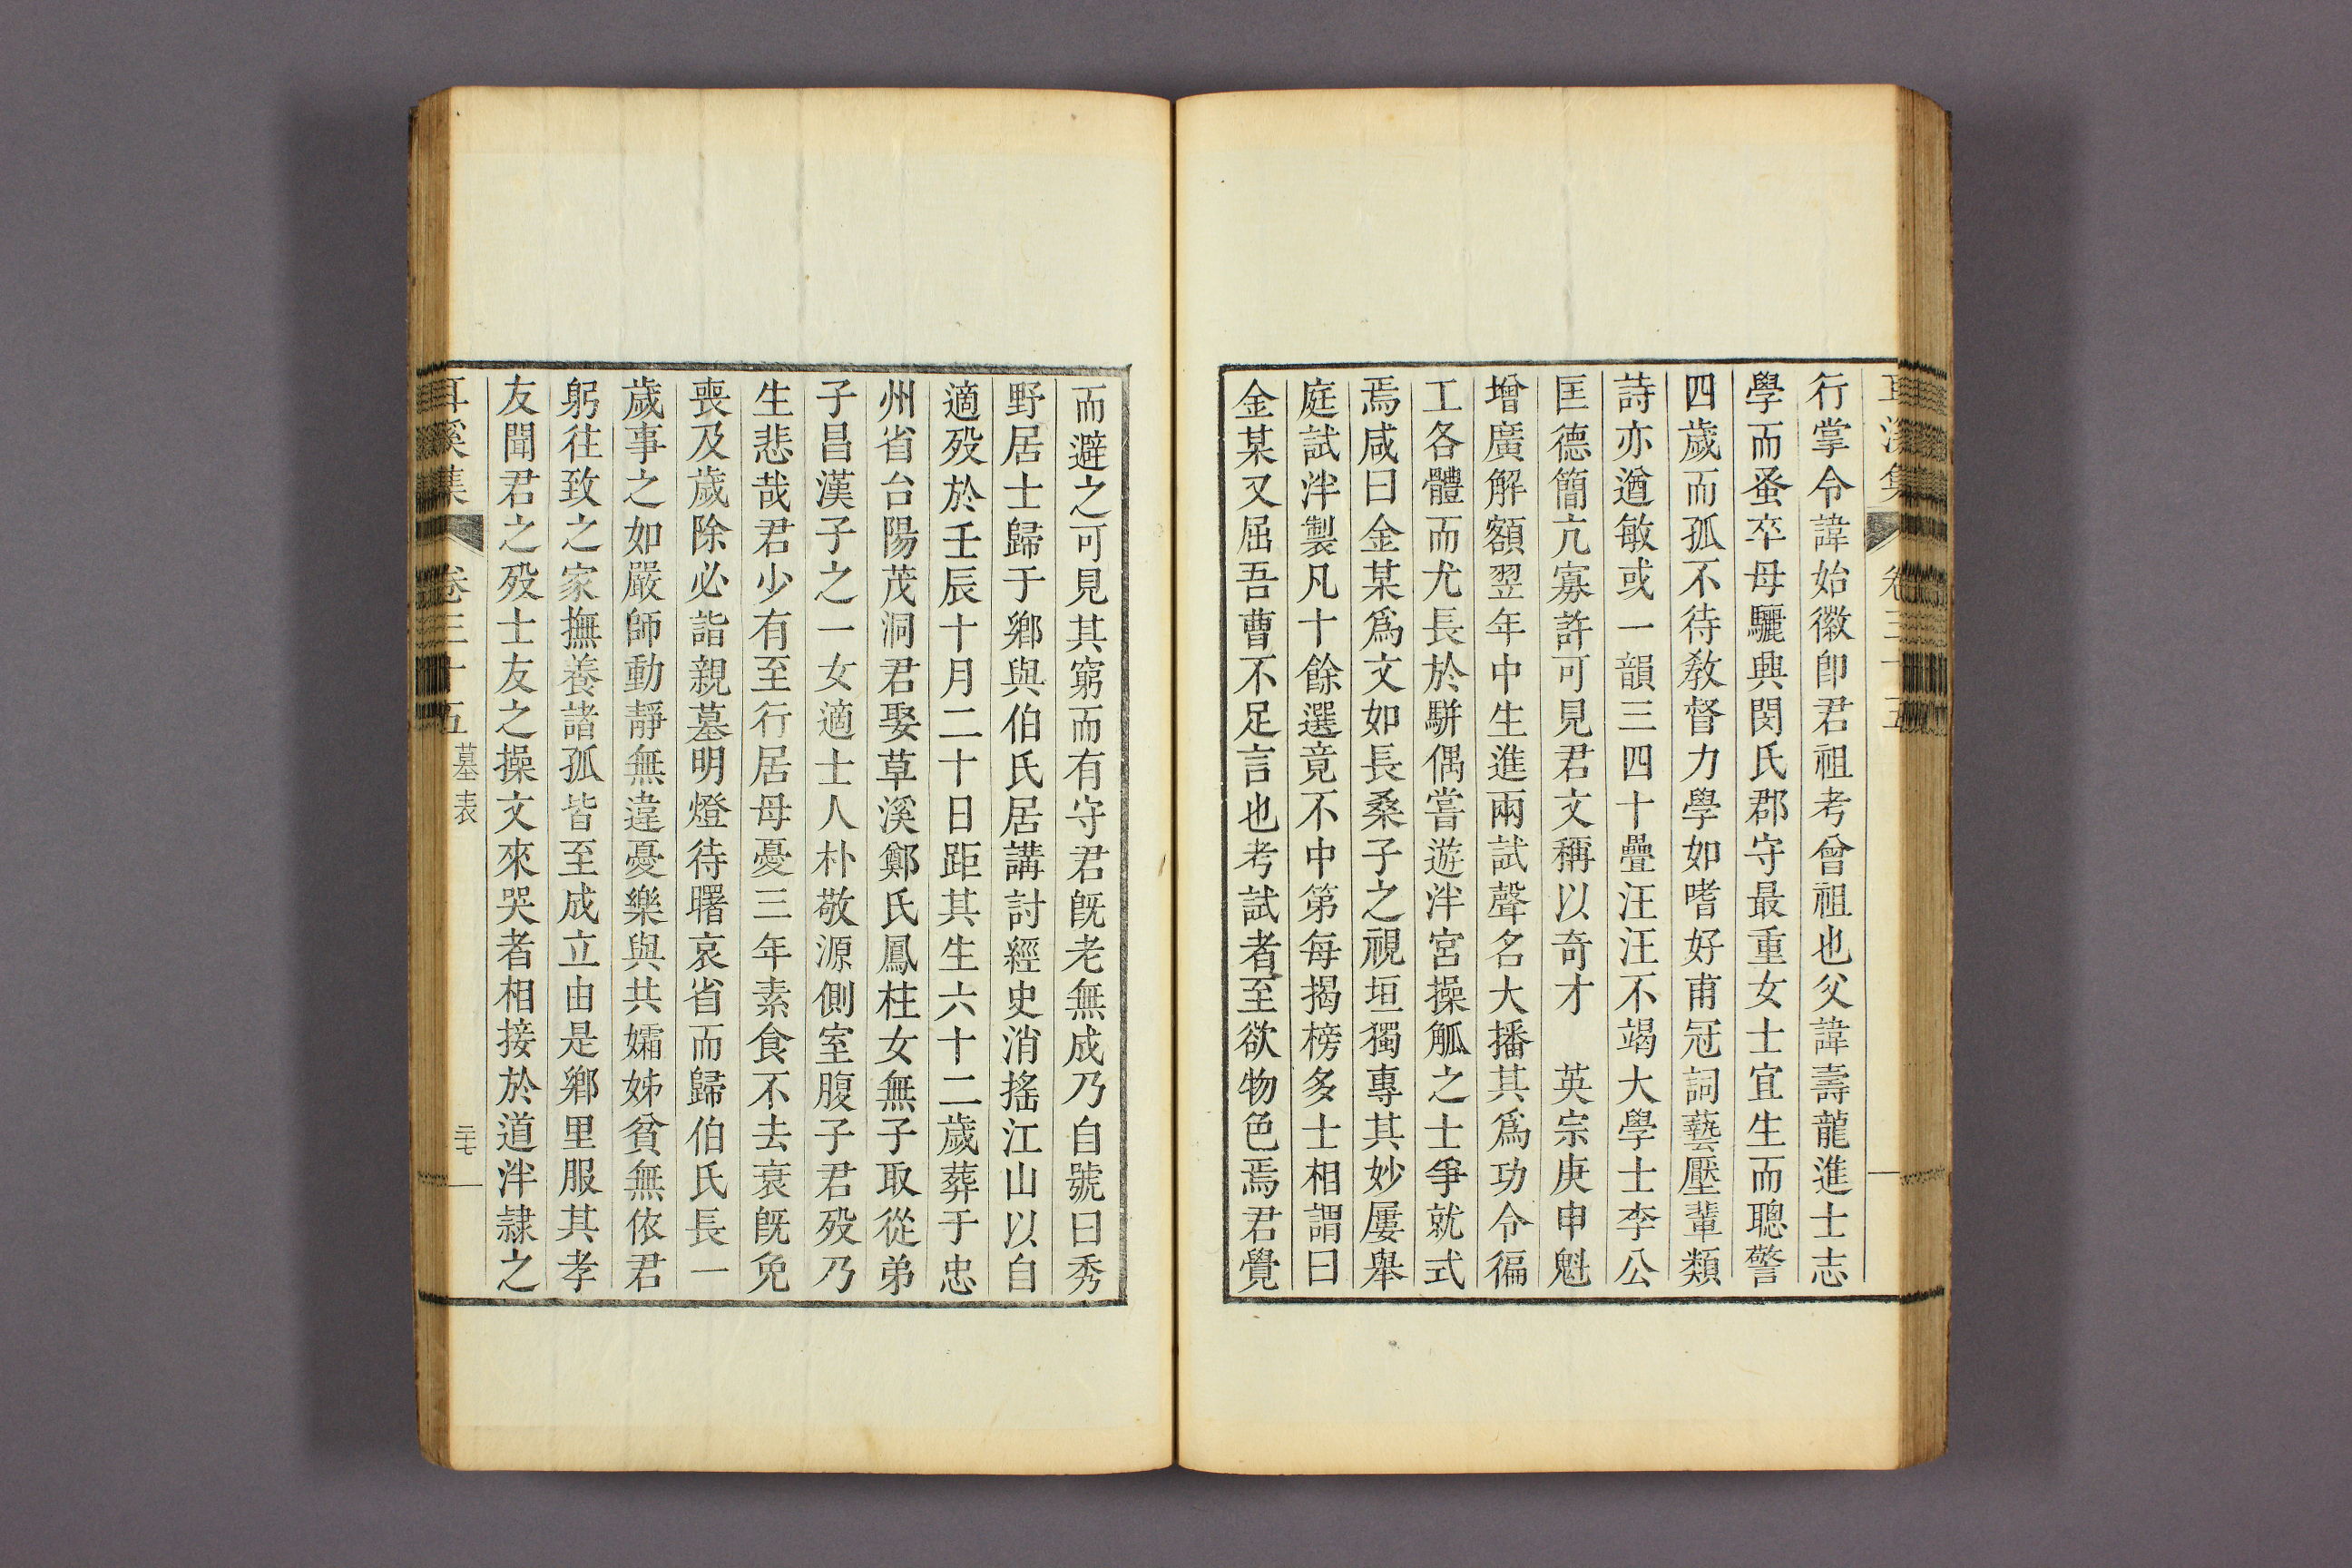 耳溪集 卷三十五
行掌令諱始徽卽君祖考曾祖也父諱壽龍進士志
學而蚤卒母驪興閔氏郡守最重女士宜生而聰警
四歲而孤不待敎督力學如嗜好甫冠詞藝壓輩類
詩亦遒敏或一韻三四十疊汪汪不竭大學士李公
匡德簡亢寡許可見君文稱以奇才　英宗庚申魁
增廣解額翌年中生進兩試聲名大播其爲功令徧
工各體而尤長於騈偶嘗遊泮宮操觚之士爭就式
焉咸曰金某爲文如長桑子之視垣獨專其妙屢擧
庭試泮製凡十餘選竟不中第每揭榜多士相謂曰
金某又屈吾曹不足言也考試者至欲物色焉君覺
而避之可見其窮而有守君旣老無成乃自號曰秀
野居士歸于鄕與伯氏居講討經史消搖江山以自
適歿於壬辰十月二十日距其生六十二歲葬于忠
州省台陽茂洞君娶草溪鄭氏鳳柱女無子取從弟
子昌漢子之一女適士人朴敬源側室腹子君歿乃
生悲哉君少有至行居母憂三年素食不去衰旣免
喪及歲除必詣親墓明燈待曙哀省而歸伯氏長一
歲事之如嚴師動靜無違憂樂與共孀姊貧無依君
躬往致之家撫養諸孤皆至成立由是鄕里服其孝
友聞君之歿士友之操文來哭者相接於道泮隷之
耳溪集 卷三十五 墓表 二十七